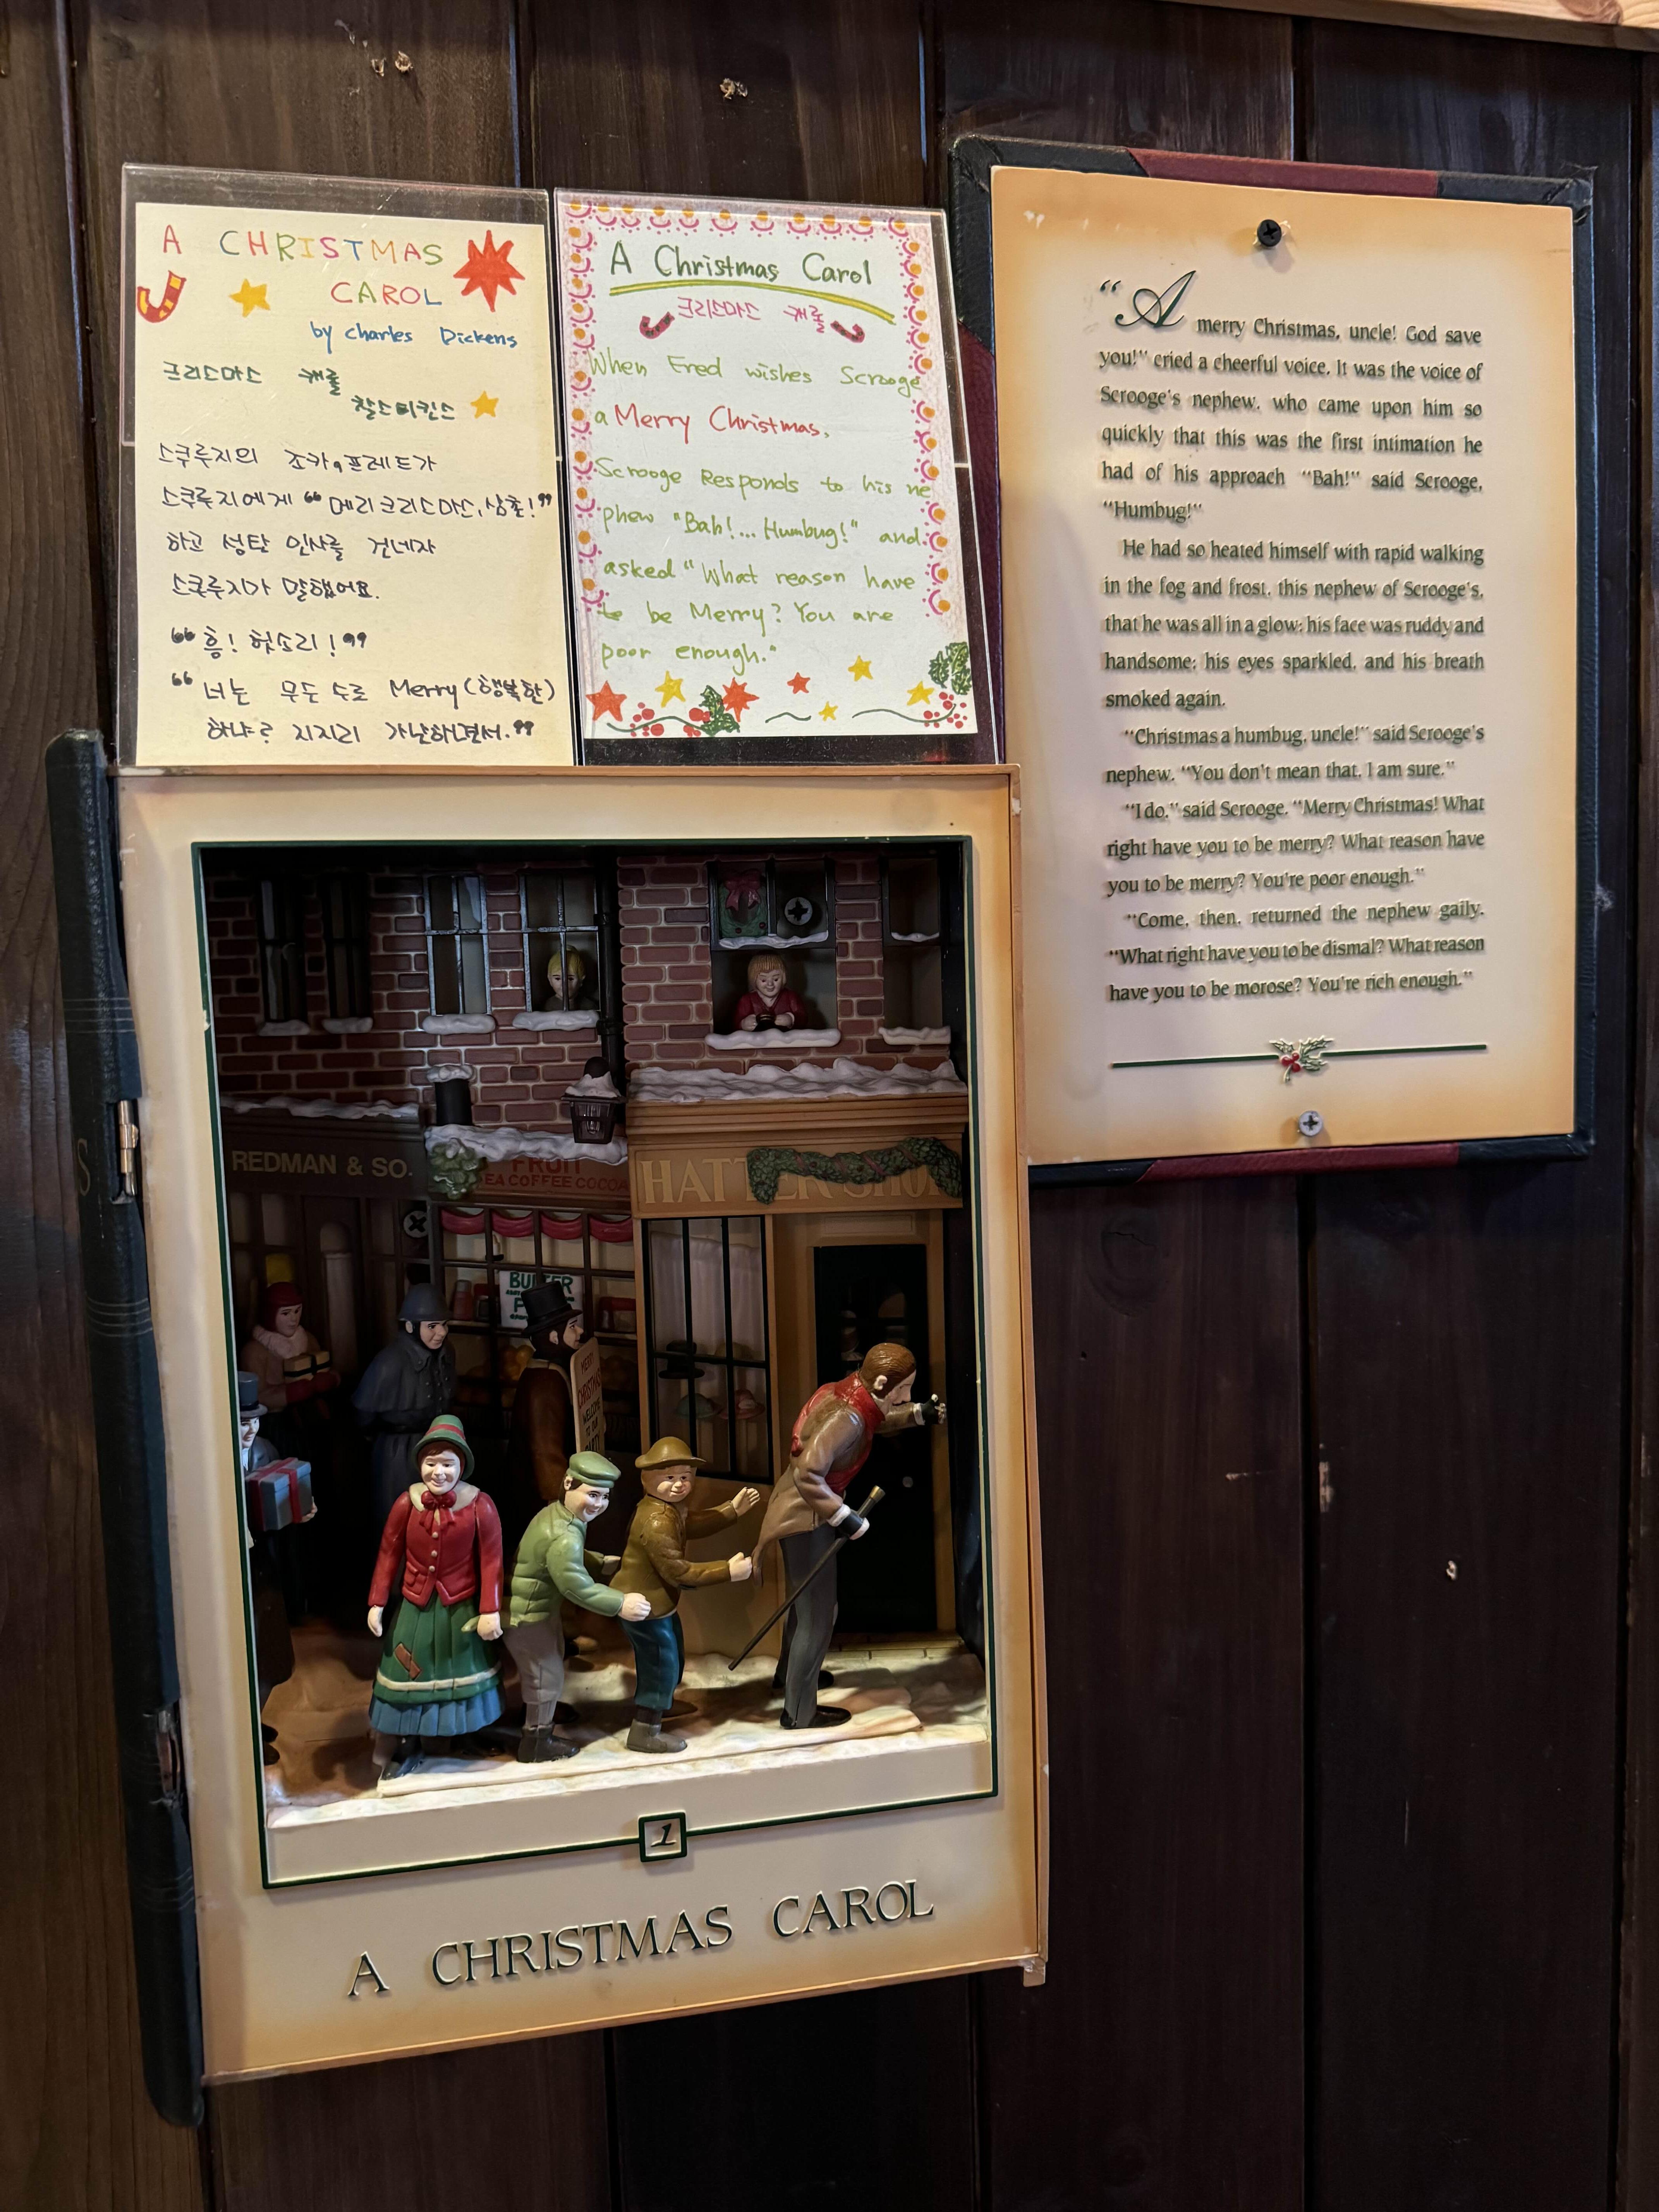 A CHRISTMAS
CAROL
by Charles Dickens
크리스마스 캐롤
찰스디킨스
스쿠루지의 조카, 프레드가
스쿠루지에게 “메리크리스마스, 삼촌!”
하고 성탄 인사를 건네자
스쿠루지가 말했어요.
“흥! 헛소리!”
“너는 무슨 수로 Merry(행복한)
하냐? 지지리 가난하면서.”
A Christmas Carol
크리스마스 캐롤
When Fred wishes Scrooge
a Merry Christmas,
Scrooge Responds to his ne
phew "Bah!... Humbug!" and
asked "What reason have
to be Merry? You are
poor enough."
“A merry Christmas, uncle! God save
you!” cried a cheerful voice. It was the voice of
Scrooge's nephew, who came upon him so
quickly that this was the first intimation he
had of his approach “Bah!” said Scrooge,
“Humbug!”
He had so heated himself with rapid walking
in the fog and frost, this nephew of Scrooge's,
that he was all in a glow; his face was ruddy and
handsome; his eyes sparkled, and his breath
smoked again.
“Christmas a humbug, uncle!” said Scrooge's
nephew. “You don't mean that, I am sure.”
“I do,” said Scrooge. “Merry Christmas! What
right have you to be merry? What reason have
you to be merry? You're poor enough.”
“Come, then, returned the nephew gaily.
“What right have you to be dismal? What reason
have you to be morose? You're rich enough.”
REDMAN & SO.
FRUIT
EA COFFEE COCOA
HATTER SHOP
MERRY
CHRISTMAS
WELCOME
TO OUR
PARTY
1
A CHRISTMAS CAROL